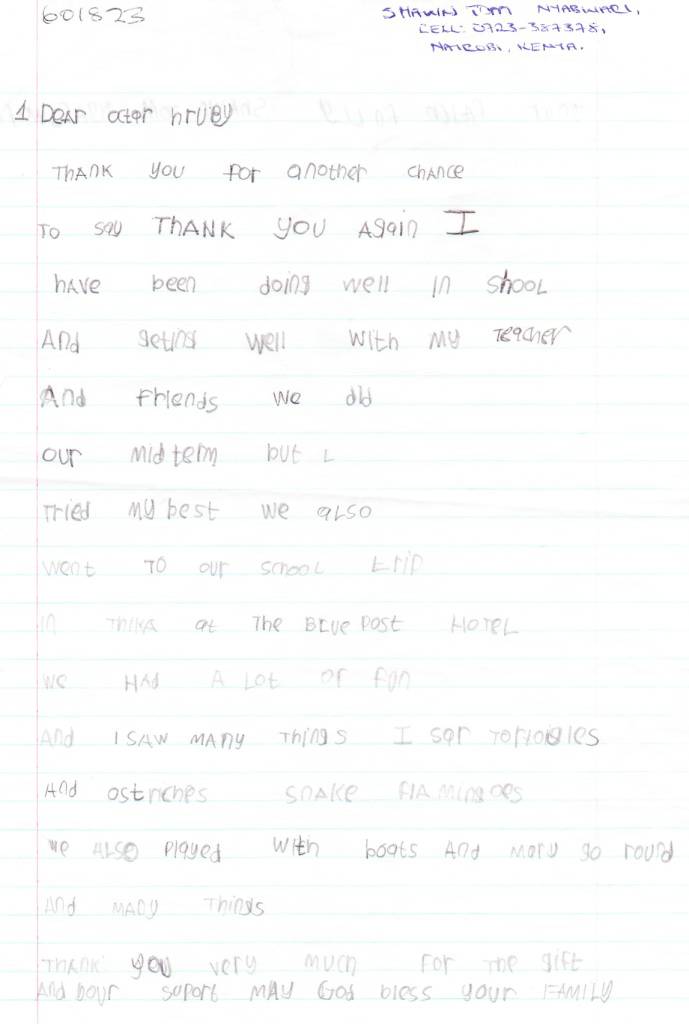 601823
SHAWN TOM NYABWARI,
CELL: 0723-387378,
NAIROBI, KENYA.
1 DEAR octor hruby
THANK YOU For another CHANCE
TO say THANK YOU AgAin I
hAVE been doing well in ShooL
And geting well with my TEACHER
And Friends we did
our mid term but I
Tried my best we aLSO
went TO our SchooL trip
in THIKA at The BLUE POST HOTEL
We HAD A LOT OF fun
And I SAW MANY Things I sar
And ostriches SNAKE FlAmingoes
We ALSO Played With boats And mary go round
And MANY Things
THANK you very much For The gift
And suport MAY God bless your FAMILY